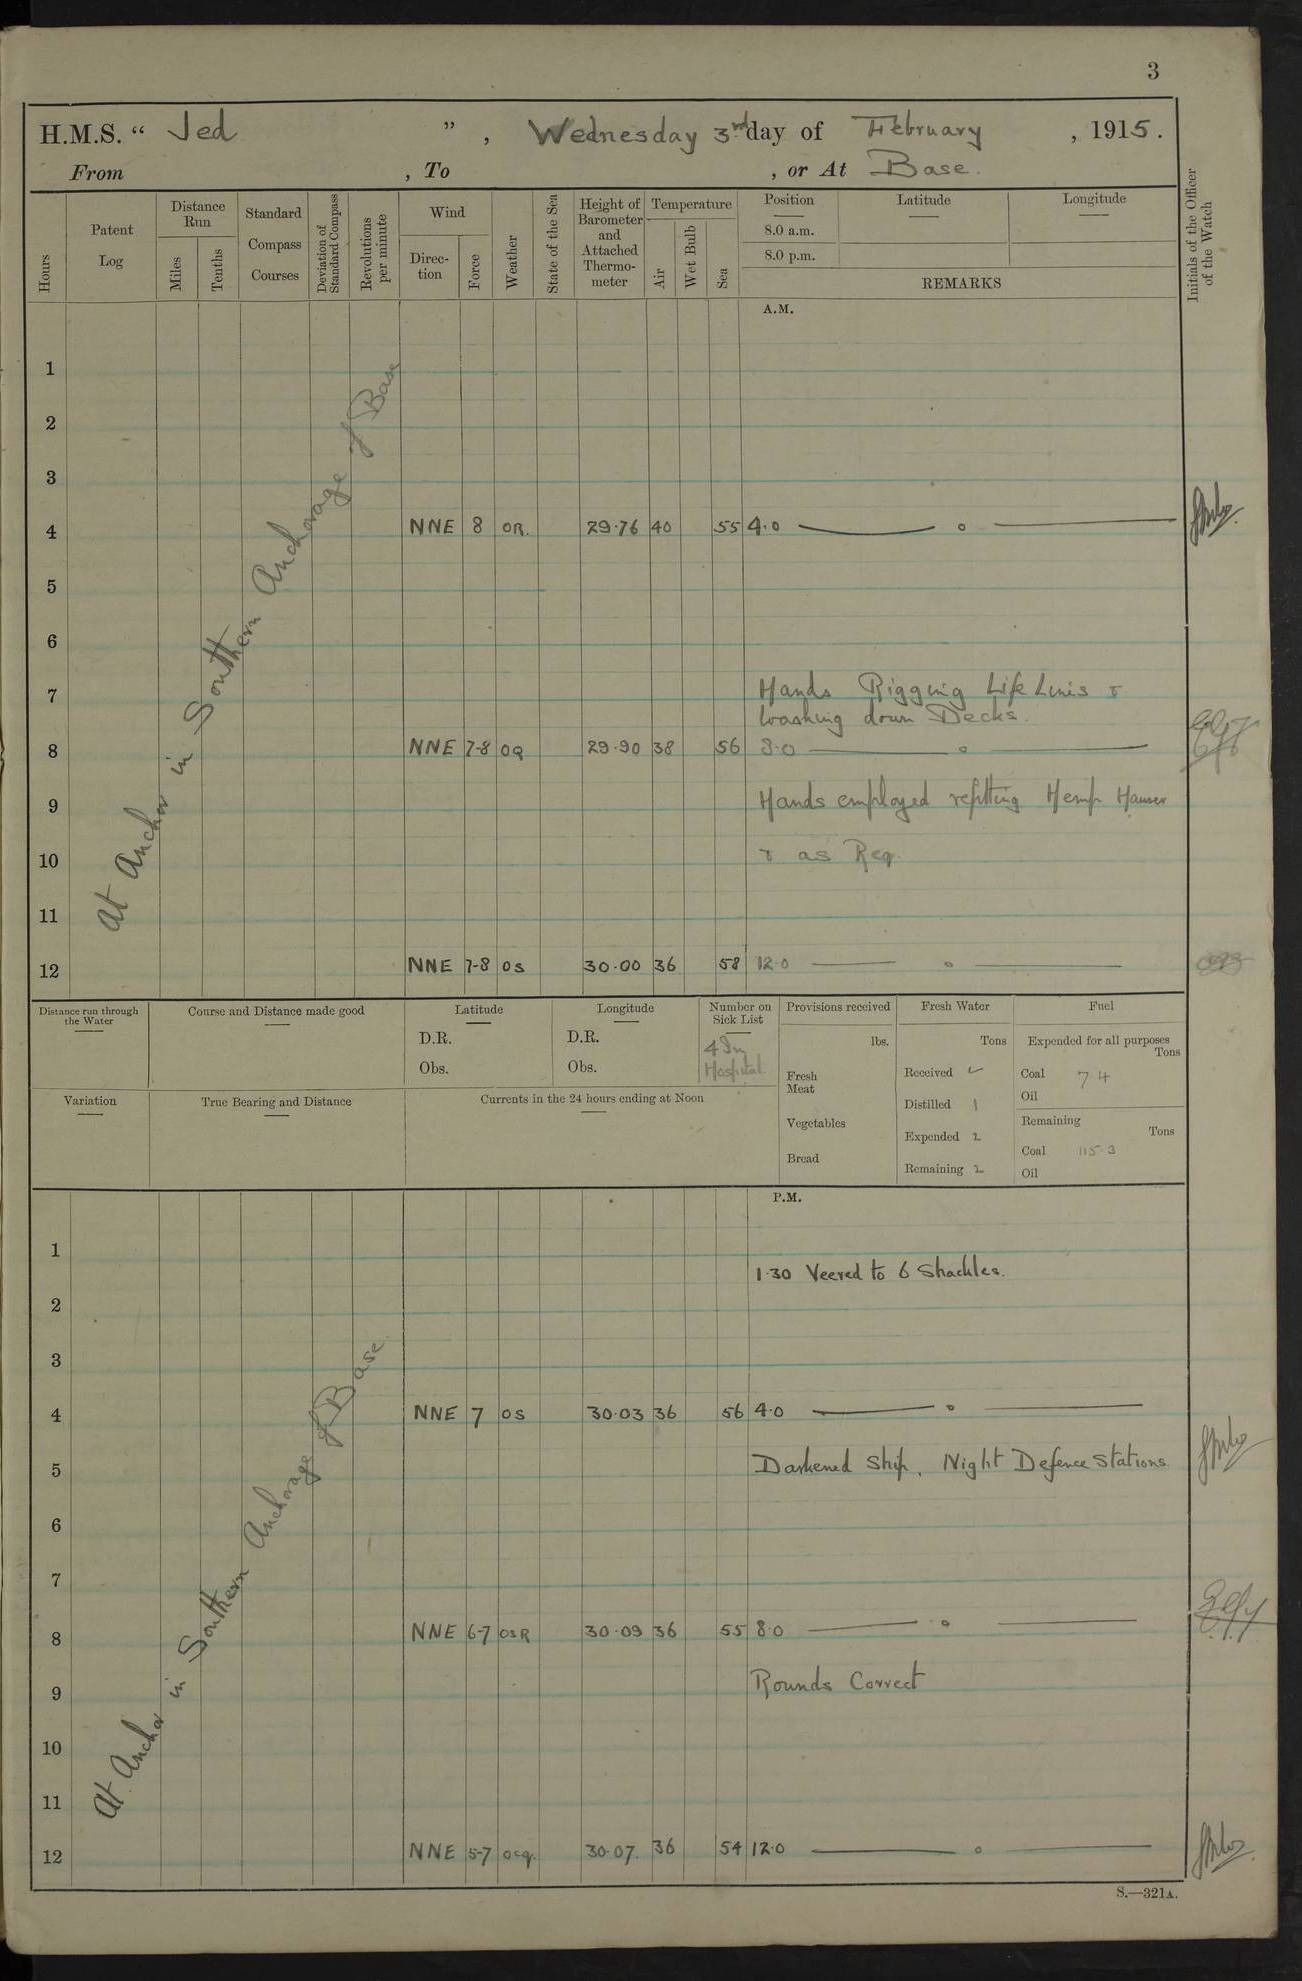 3
H.M.S. “ Jed ” , Wednesday 3rd day of February , 1915.
From , To , or At Base.
Hours
Patent Log
Distance Run
Miles
Tenths
Standard Compass Courses
Deviation of Standard Compass
Revolutions per minute
Wind
Direc-tion
Force
Weather
State of the Sea
Height of Barometer and Attached Thermo-meter
Temperature
Air
Wet Bulb
Sea
Position
8.0 a.m.
8.0 p.m.
Latitude
Longitude
REMARKS
Initials of the Officer of the Watch
A.M.
At Anchor in Southern Anchorage of Base
1
2
3
4 NNE 8 OR. 29.76 40 55 4.0 — o —
5
6
7 Hands Rigging Life Lines &
washing down Decks.
8 NNE 7-8 OQ 29.90 38 56 8.0 — o —
9 Hands employed refitting Hemp Hawser
10 & as Req.
11
12 NNE 7-8 OS 30.00 36 58 12.0 — o —
Distance run through the Water
Course and Distance made good
Latitude
D.R.
Obs.
Longitude
D.R.
Obs.
Number on Sick List
4 In
Hospital
Provisions received
lbs.
Fresh Meat
Vegetables
Bread
Fresh Water
Tons
Received
Distilled 1
Expended 2
Remaining 2
Fuel
Expended for all purposes
Tons
Coal 7 4
Oil
Remaining
Tons
Coal 115.3
Oil
Variation
True Bearing and Distance
Currents in the 24 hours ending at Noon
P.M.
At Anchor in Southern Anchorage of Base
1
1.30 Veered to 6 Shackles.
2
3
4 NNE 7 OS 30.03 36 56 4.0 — o —
5 Darkened Ship, Night Defence Stations.
6
7
8 NNE 6-7 OSR 30.09 36 55 8.0 — o —
9 Rounds Correct
10
11
12 NNE 5-7 ocq. 30.07. 36 54 12.0 — o —
S.—321A.